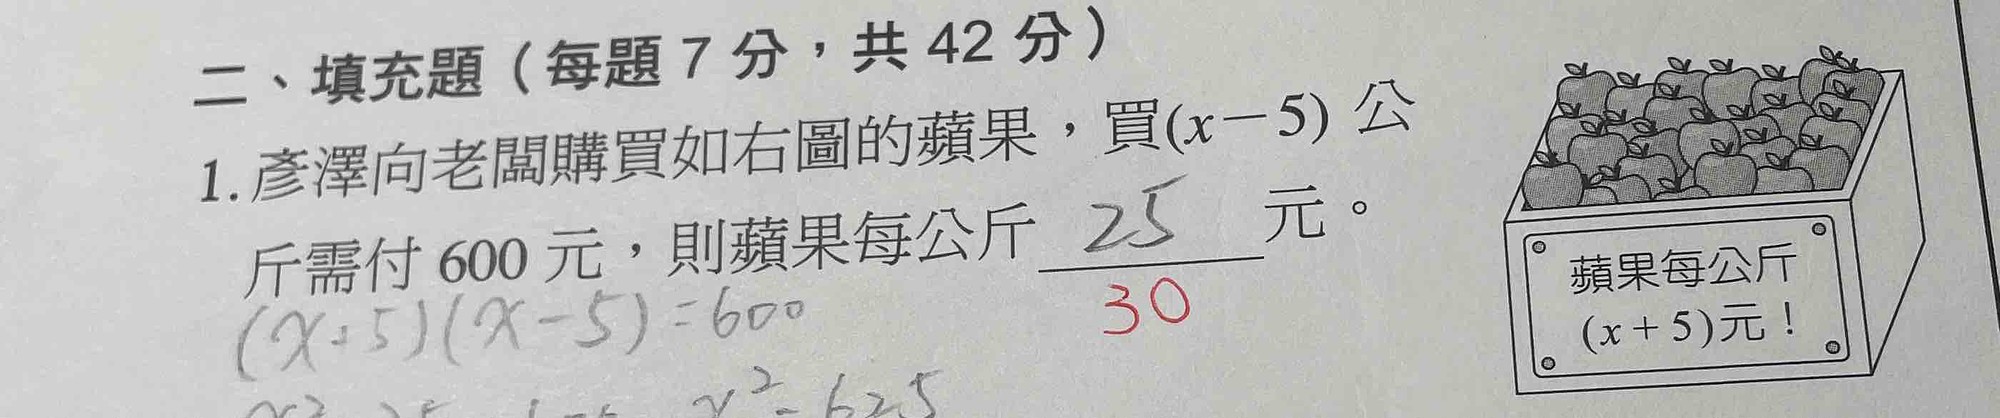 二、填充題（每題 7 分，共 42 分）
1. 彥澤向老闆購買如右圖的蘋果，買(x－5) 公
斤需付 600 元，則蘋果每公斤 25 元。
30
(x+5)(x-5)=600
x²=625
蘋果每公斤
(x＋5)元！